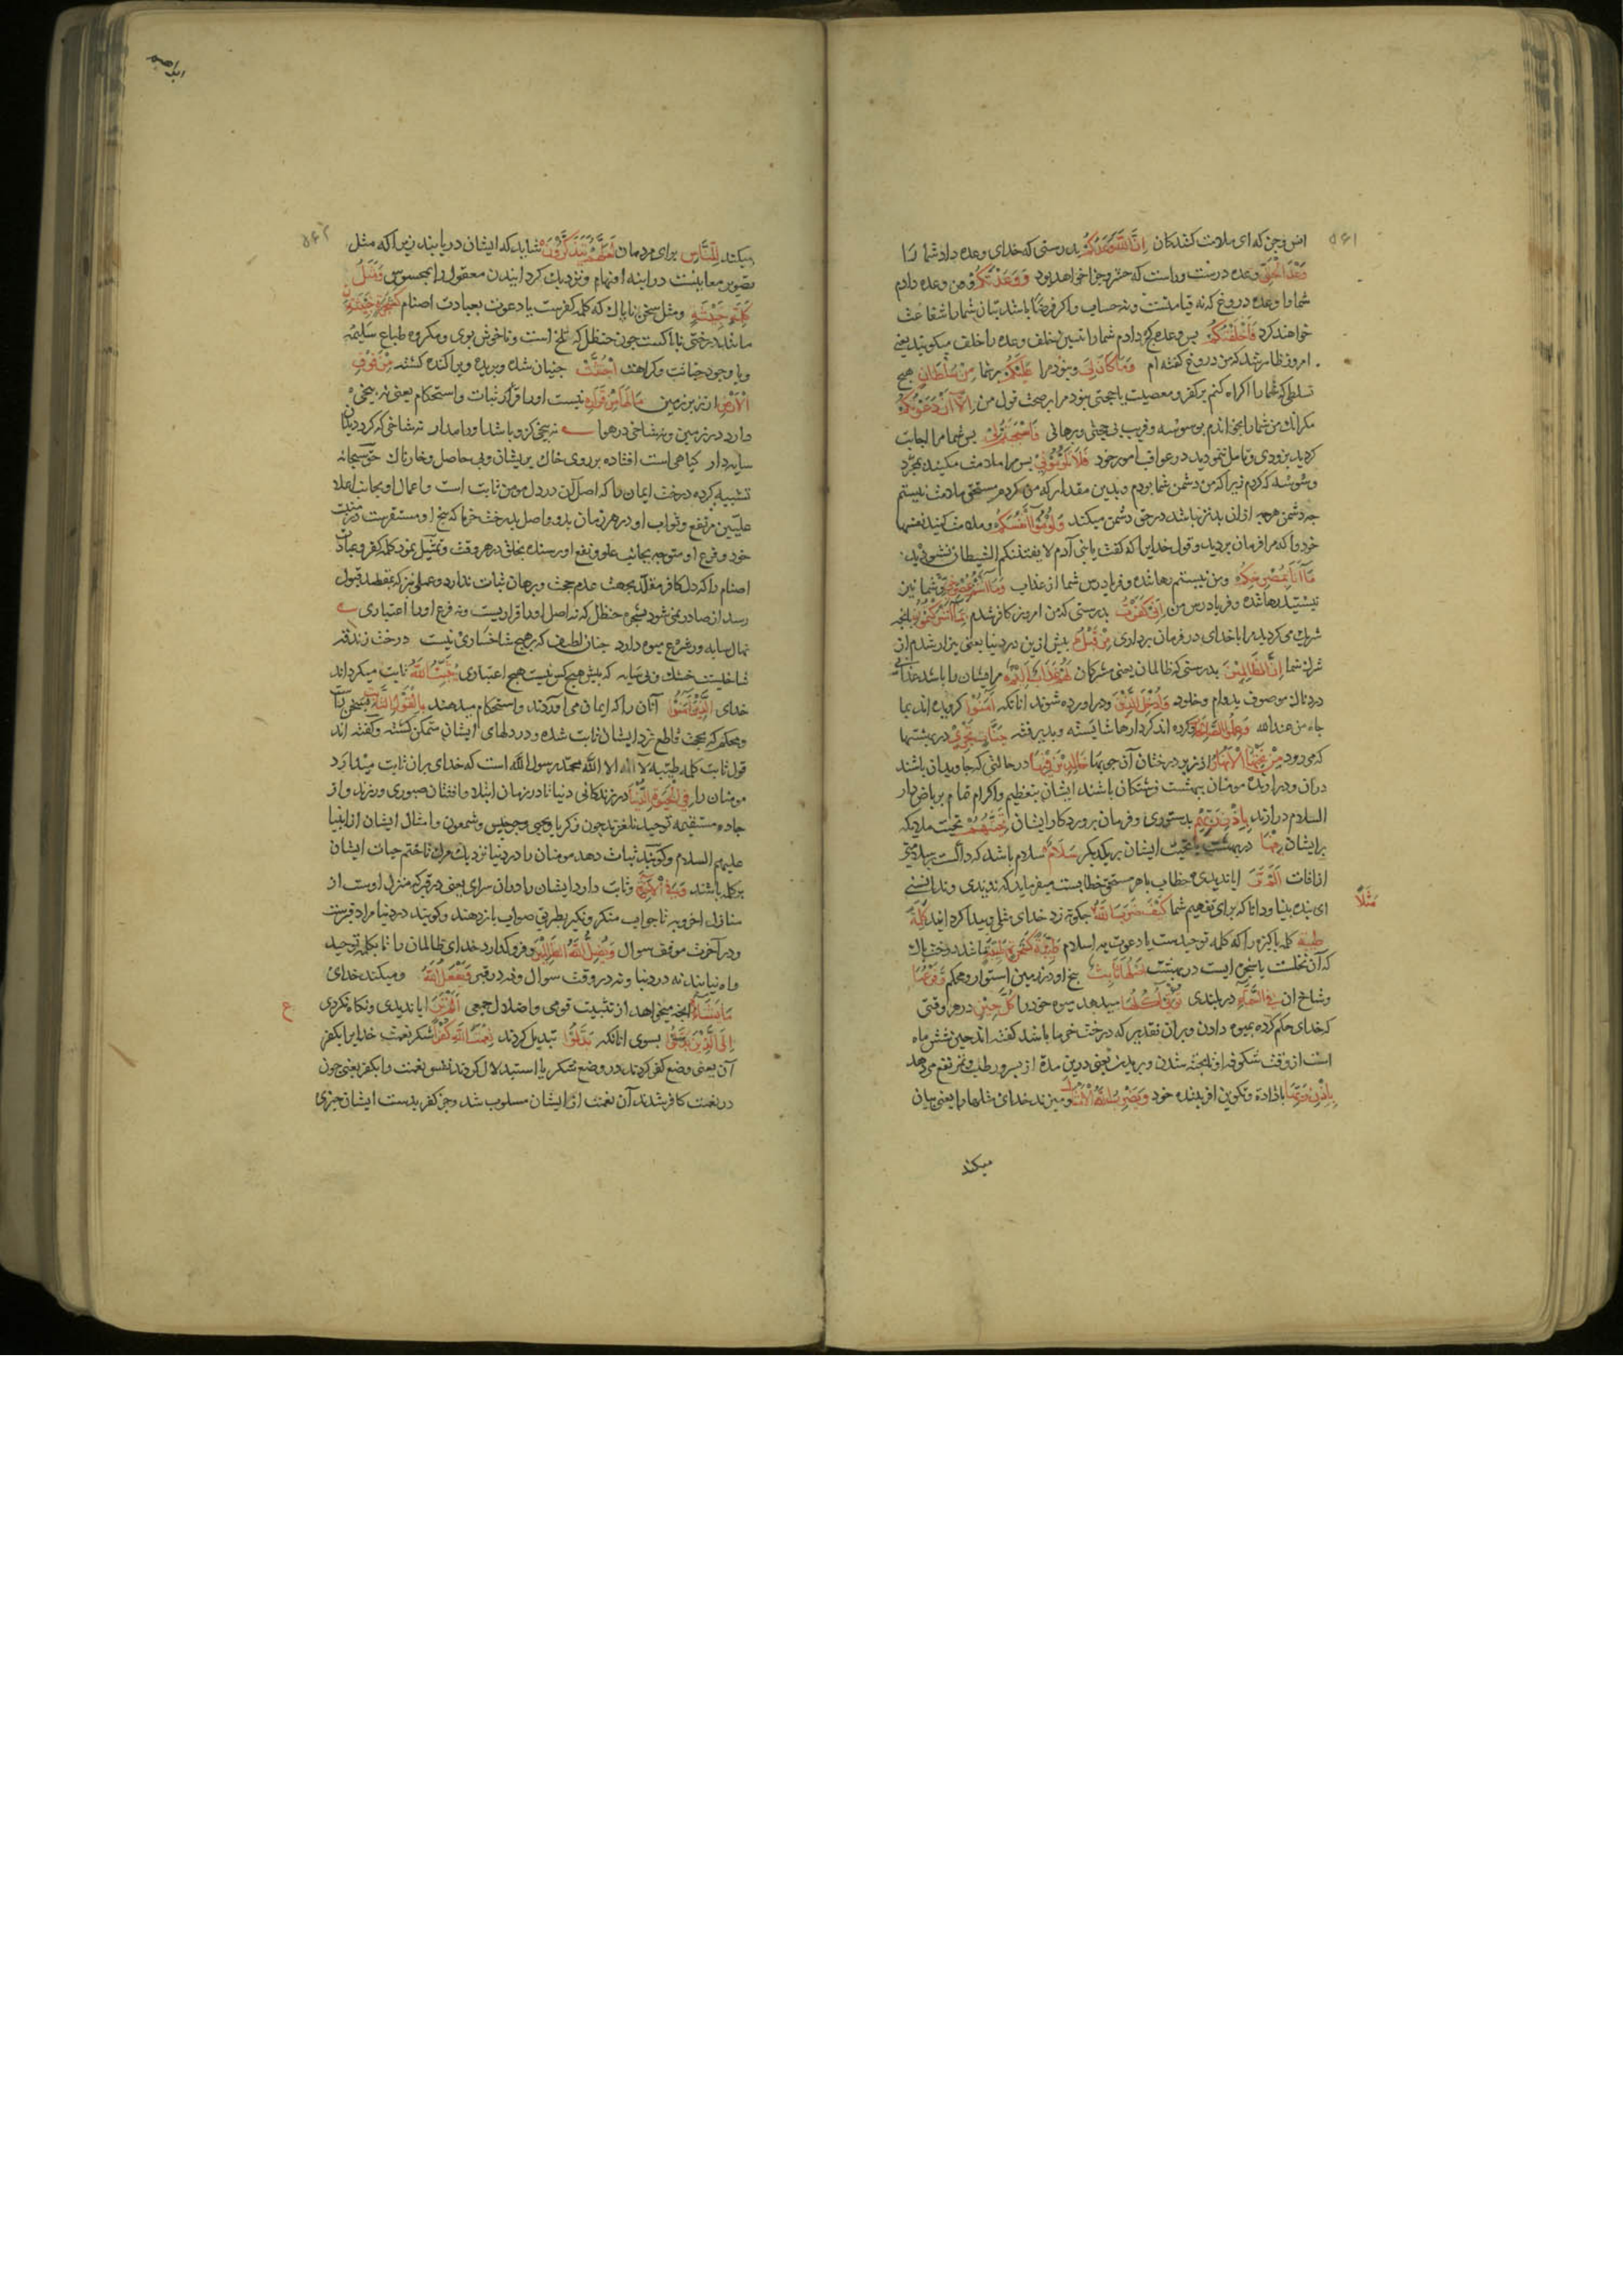 ۵۶۱
انس و جن که ای ملامت کنندکان اِنَّ اللّٰهَ وَعَدَكُمْ بدرستی که خدای وعده داد شما را
وَعْدَ الْحَقِّ وعده درست و راست که حشر و جزا خواهد بود وَوَعَدْتُكُمْ و من وعده دادم
شما را وعده دروغ که نه قیامتست و نه حساب و اکر فرضا باشد بتان شما را شفاعت
خواهند کرد فَاَخْلَفْتُكُمْ پس وعده کج دادم شما را تبیین خلف وعده را خلف میکویند یعنی
امروز ظاهر شد که من دروغ گفته ام وَمَا كَانَ لِيَ و نبود مرا عَلَيْكُمْ بر شما مِنْ سُلْطَانٍ هیچ
تسلطی که شما را اکراه کنم بر کفر و معصیت یا حجتی نبود مرا بر صحت قول من اِلَّا اَنْ دَعَوْتُكُمْ
مکر آنکه من شما را بخواندم بوسوسه و فریب بی حجتی و برهانی فَاسْتَجَبْتُمْ لِيْ پس شما مرا اجابت
کردید بزودی و تامل ننمودید در عواقب امور خود فَلَا تَلُوْمُوْنِيْ پس مرا ملامت مکنید بمجرد
وسوسه که کردم زیرا که من دشمن شما بودم و بدین مقدار که من کردم مستحق ملامت نیستم
چه دشمن هرچه ازان بدتر نباشد در حق دشمن میکند وَلُوْمُوْا اَنْفُسَكُمْ و ملامت کنید نفسها
خود را که مرا فرمان بردید و قول خدایرا که گفت یا بنی آدم لا یفتننکم الشیطان نشنودید
مَا اَنَا بِمُصْرِخِكُمْ و من نیستم رهاننده و فریادرس شما از عذاب وَمَا اَنْتُمْ بِمُصْرِخِيَّ و شما نیز
نیستید رهاننده و فریادرس من اِنِّيْ كَفَرْتُ بدرستی که من امروز کافر شدم بِمَا اَشْرَكْتُمُوْنِ بانچه
شریک می کردید مرا با خدای در فرمان برداری مِنْ قَبْلُ پیش ازین در دنیا یعنی بیزار شدم از
شرک شما اِنَّ الظَّالِمِيْنَ بدرستی که ظالمان یعنی مشرکان لَهُمْ عَذَابٌ اَلِيْمٌ مر ایشان را باشد عذابی
دردناک موصوف بدوام و خلود وَاُدْخِلَ الَّذِيْنَ و دراورده شوند انانکه اٰمَنُوْا کرویده اند بما
جاء من عند الله وَعَمِلُوا الصَّالِحَاتِ و کرده اند کردارها شایسته و پذیرفته جَنَّاتٍ تَجْرِيْ در بهشتها
که می رود مِنْ تَحْتِهَا الْاَنْهَارُ از زیر درختان آن جویها خَالِدِيْنَ فِيْهَا در حالتی که جاویدان باشند
دران و درارنده مومنان ببهشت فرشتکان باشند ایشان بتعظیم و اکرام تمام بریاض دار
السلام درارند بِاِذْنِ رَبِّهِمْ بدستوری و فرمان پروردکار ایشان تَحِيَّتُهُمْ تحیت ملایکه
بر ایشان فِيْهَا در بهشت یا تحیت ایشان بر یکدیکر سَلَامٌ سلام باشد
از افات اَلَمْ تَرَ ایا ندیدی خطاب با هر مستحق خطابست
ای بنده بینا و دانا که برای تفهیم شما كَيْفَ ضَرَبَ اللّٰهُ چکونه زد خدای مثلی و پیدا کرد كَلِمَةً
مَثَلًا
طَيِّبَةً کلمه پاکیزه را که کلمه توحیدست یا دعوت به اسلام كَشَجَرَةٍ طَيِّبَةٍ مانند درخت پاک
که آن نخلست یا شجره ایست در بهشت اَصْلُهَا ثَابِتٌ بیخ او در زمین استوار و محکم وَفَرْعُهَا
و شاخ ان فِي السَّمَاءِ در بلندی تُؤْتِيْ اُكُلَهَا میدهد میوه خود را كُلَّ حِيْنٍ در هر وقتی
که خدای حکم کرده بمیوه دادن و بران تقدیر که درخت خرما باشد گفته اند حین شش ماه
است از وقت شکوفه
بِاِذْنِ رَبِّهَا باراده و تکوین افریننده خود وَيَضْرِبُ اللّٰهُ الْاَمْثَالَ و میزند خدای مثلها را یعنی بیان
میکند
۵۶۲
میکند لِلنَّاسِ برای مردمان لَعَلَّهُمْ يَتَذَكَّرُوْنَ شاید که ایشان دریابند زیرا که مثل
تصویر معانیست در اینه افهام و نزدیک کردانیدن معقول را بمحسوس وَمَثَلُ
كَلِمَةٍ خَبِيْثَةٍ و مثل سخن ناپاک که کلمه کفرست یا دعوت بعبادت اصنام كَشَجَرَةٍ خَبِيْثَةٍ
مانند درختی ناپاکست چون حنظل که تلخ است و ناخوش بوی و مکروه طباع سلیمه
و با وجود خباثت و کراهت اجْتُثَّتْ چنان شده و بریده و پراکنده کشته مِنْ فَوْقِ
الْاَرْضِ از زبر زمین مَا لَهَا مِنْ قَرَارٍ نیست او را قراری و ثبات و استحکام یعنی نه بیخی
دارد در زمین و نه شاخی در هوا نه بیخی کزو باشد او را مدار نه شاخی که کردد بدان
سایه دار کیاهی است افتاده بر روی خاک پریشان و بی حاصل و خارناک حق سبحانه
تشبیه کرده درخت ایمان را که اصل آن در دل مومن ثابت است و اعمال او بجانب اعلا
علیین مرتفع و ثواب او در هر زمان بدو واصل بدرخت خرما که بیخ او مستقرست در منبت
خود و فرع او متوجه بجانب علو و نفع او رسنده بخلق در هر وقت و تمثیل نمود کلمه کفر و عبادت
اصنام را که در دل کافر مقلد بجهت عدم حجت و برهان ثبات ندارد و عملی نیز که بمقصد قبول
رسد از صادر نمی شود بشجره حنظل که نه اصل او را قراریست و نه فرع او را اعتباری
نهال سایه ور شرع میوه دارد چنان لطیف که بر هیچ شاخساری نیست درخت زندقه
شاخیست خشک و بی سایه که پیش هیچ کس نیست هیچ اعتباری يُثَبِّتُ اللّٰهُ ثابت میکرداند
خدای الَّذِيْنَ اٰمَنُوْا آنان را که ایمان می آورند و استحکام میدهند بِالْقَوْلِ الثَّابِتِ بسخن راست
و محکم که بحجت قاطع نزد ایشان ثابت شده و در دلهای ایشان متمکن کشته و گفته اند
قول ثابت کلمه طیبه لا اله الا الله محمد رسول الله است که خدای بران ثابت میدارد
مومنان را فِي الْحَيٰوةِ الدُّنْيَا در زندکانی دنیا تا در زمان ابتلا و افتتان صبوری ورزند و از
جاده مستقیمه توحید نلغزند چون زکریا و یحیی و جرجیس و شمعون و امثال ایشان از انبیا
علیهم السلام و کویند ثبات دهد مومنان را در دنیا نزدیک مرک تا ختم حیات ایشان
بر کلمه باشد وَفِي الْاٰخِرَةِ و ثابت دارد ایشان را دران سرای یعنی در قبر که منزل اوست از
منازل اخرویه تا جواب منکر و نکیر بطریق صواب باز دهند و کویند در دنیا مراد قبرست
و در آخرت موقف سوال وَيُضِلُّ اللّٰهُ الظَّالِمِيْنَ و فرو کذارد خدای ظالمان را تا بکلمه توحید
راه نیابند نه در دنیا و نه در وقت سوال و نه در قبر وَيَفْعَلُ اللّٰهُ و میکند خدای
مَا يَشَاءُ انچه میخواهد از تثبیت قومی و اضلال جمعی اَلَمْ تَرَ ایا ندیدی و نکاه نکردی
ع
اِلَى الَّذِيْنَ بسوی انانکه بَدَّلُوْا تبدیل کردند نِعْمَتَ اللّٰهِ كُفْرًا شکر نعمت خدایرا بکفر
آن یعنی وضع کفر کردند در موضع شکر یا استبدلال کردند نفس نعمت را بکفر یعنی چون
در نعمت کافر شدند آن نعمت از ایشان مسلوب شد و جز کفر بدست ایشان چیزی